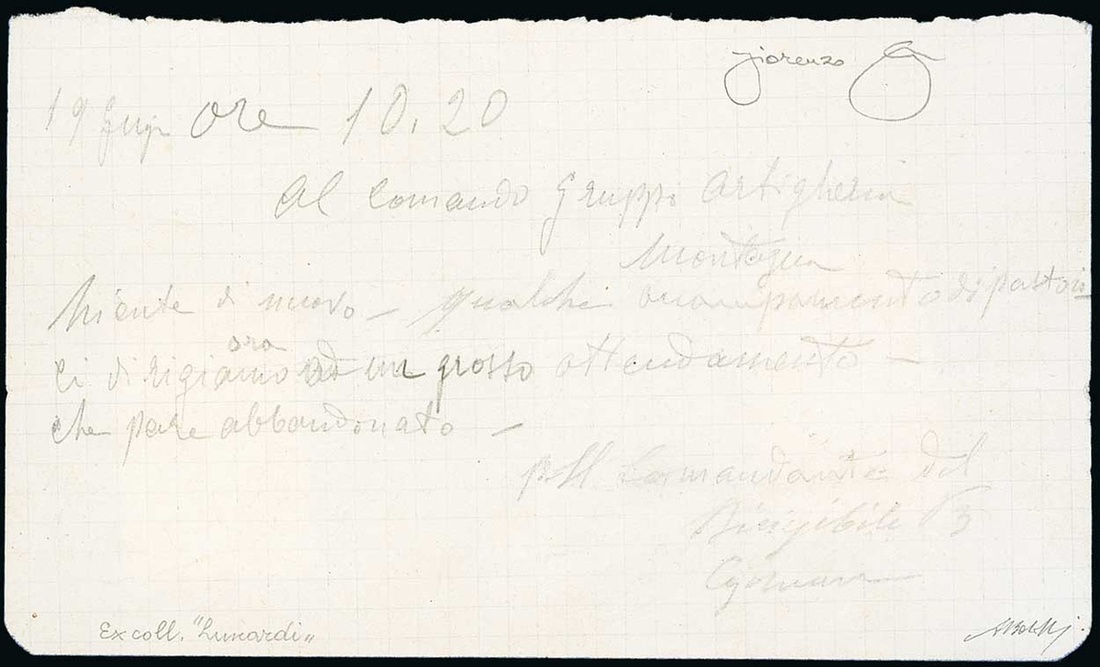 Fiorenzo
19 giugn ore 10.20
Al Comando Gruppo Artiglieria
Montagna
Niente di nuovo - qualche accampamento di pastori -
ora
ci dirigiamo ad un grosso attendamento -
che pare abbandonato -
p. Il Comandante del
Dirigibile P3
Ex coll. "Lunardi"